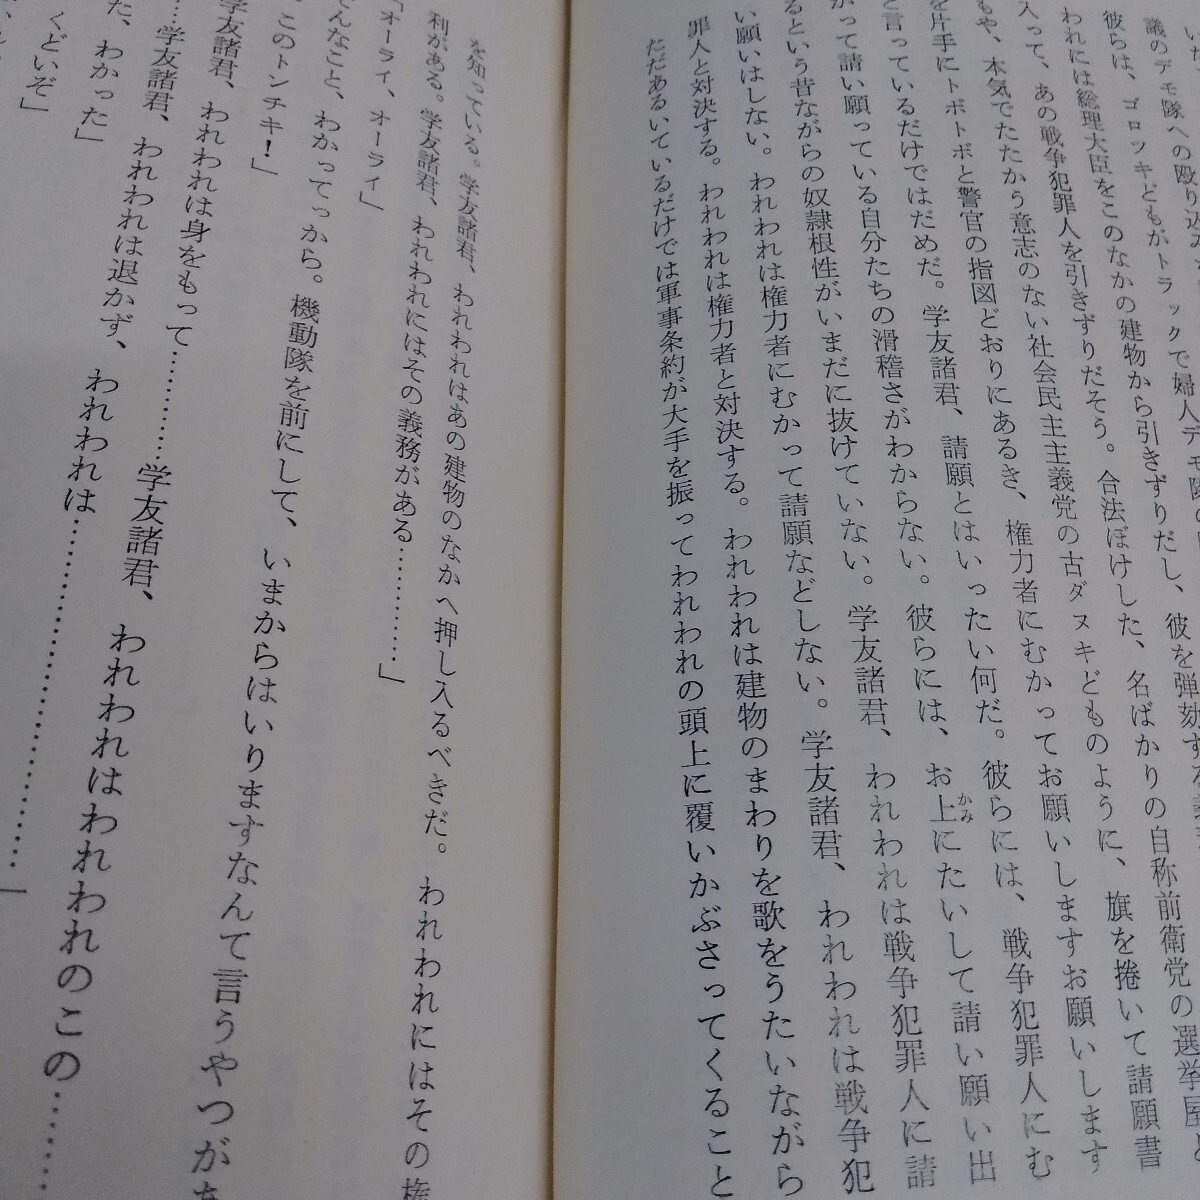 議のデモ隊への殴り込み
彼らは、ゴロツキどもがトラックで婦人デモ隊の
われには総理大臣をこのなかの建物から引きずりだし、彼を弾劾する
入って、あの戦争犯罪人を引きずりだそう。合法ぼけした、名ばかりの自称前衛党の選挙屋と
もや、本気でたたかう意志のない社会民主主義党の古ダヌキどものように、旗を捲いて請願書
を片手にトボトボと警官の指図どおりにあるき、権力者にむかってお願いしますお願いします
と言っているだけではだめだ。学友諸君、請願とはいったい何だ。彼らには、戦争犯罪人にむ
かって請い願っている自分たちの滑稽さがわからない。彼らには、お上にたいして請い願い出
るという昔ながらの奴隷根性がいまだに抜けていない。学友諸君、われわれは戦争犯罪人に請
い願いはしない。われわれは権力者にむかって請願などしない。学友諸君、われわれは戦争犯
罪人と対決する。われわれは権力者と対決する。われわれは建物のまわりを歌をうたいながら
ただあるいているだけでは軍事条約が大手を振ってわれわれの頭上に覆いかぶさってくること
を知っている。学友諸君、われわれはあの建物のなかへ押し入るべきだ。われわれにはその権
利がある。学友諸君、われわれにはその義務がある…………」
「オーライ、オーライ」
んなこと、わかってっから。機動隊を前にして、いまからはいりますなんて言うやつが
このトンチキ！」
学友諸君、われわれは身をもって…………学友諸君、われわれはわれわれのこの……
……学友諸君、われわれは退かず、われわれは……………………」
た、わかった」
くどいぞ」